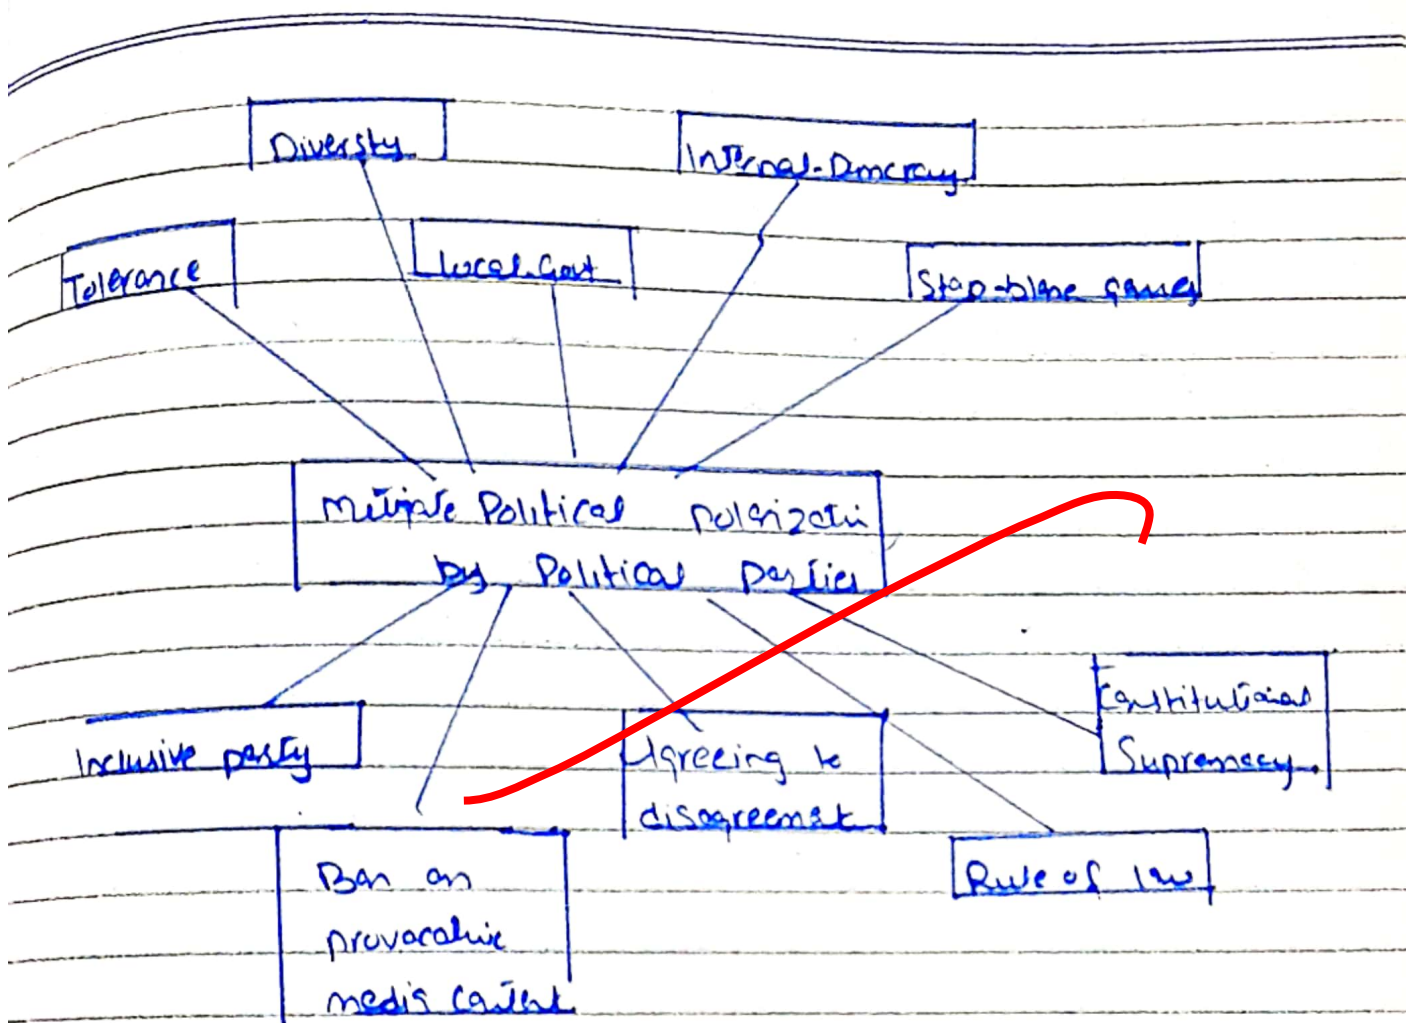 Diversty
Internal-Dmcracy
Tolerance
Local-Govt
Stop-blame games
Political polarization
by Political parties
Inclusive party
Agreeing to
disagreement
Constitutional
Supremacy.
Ban on
provocative
media content
Rule of law